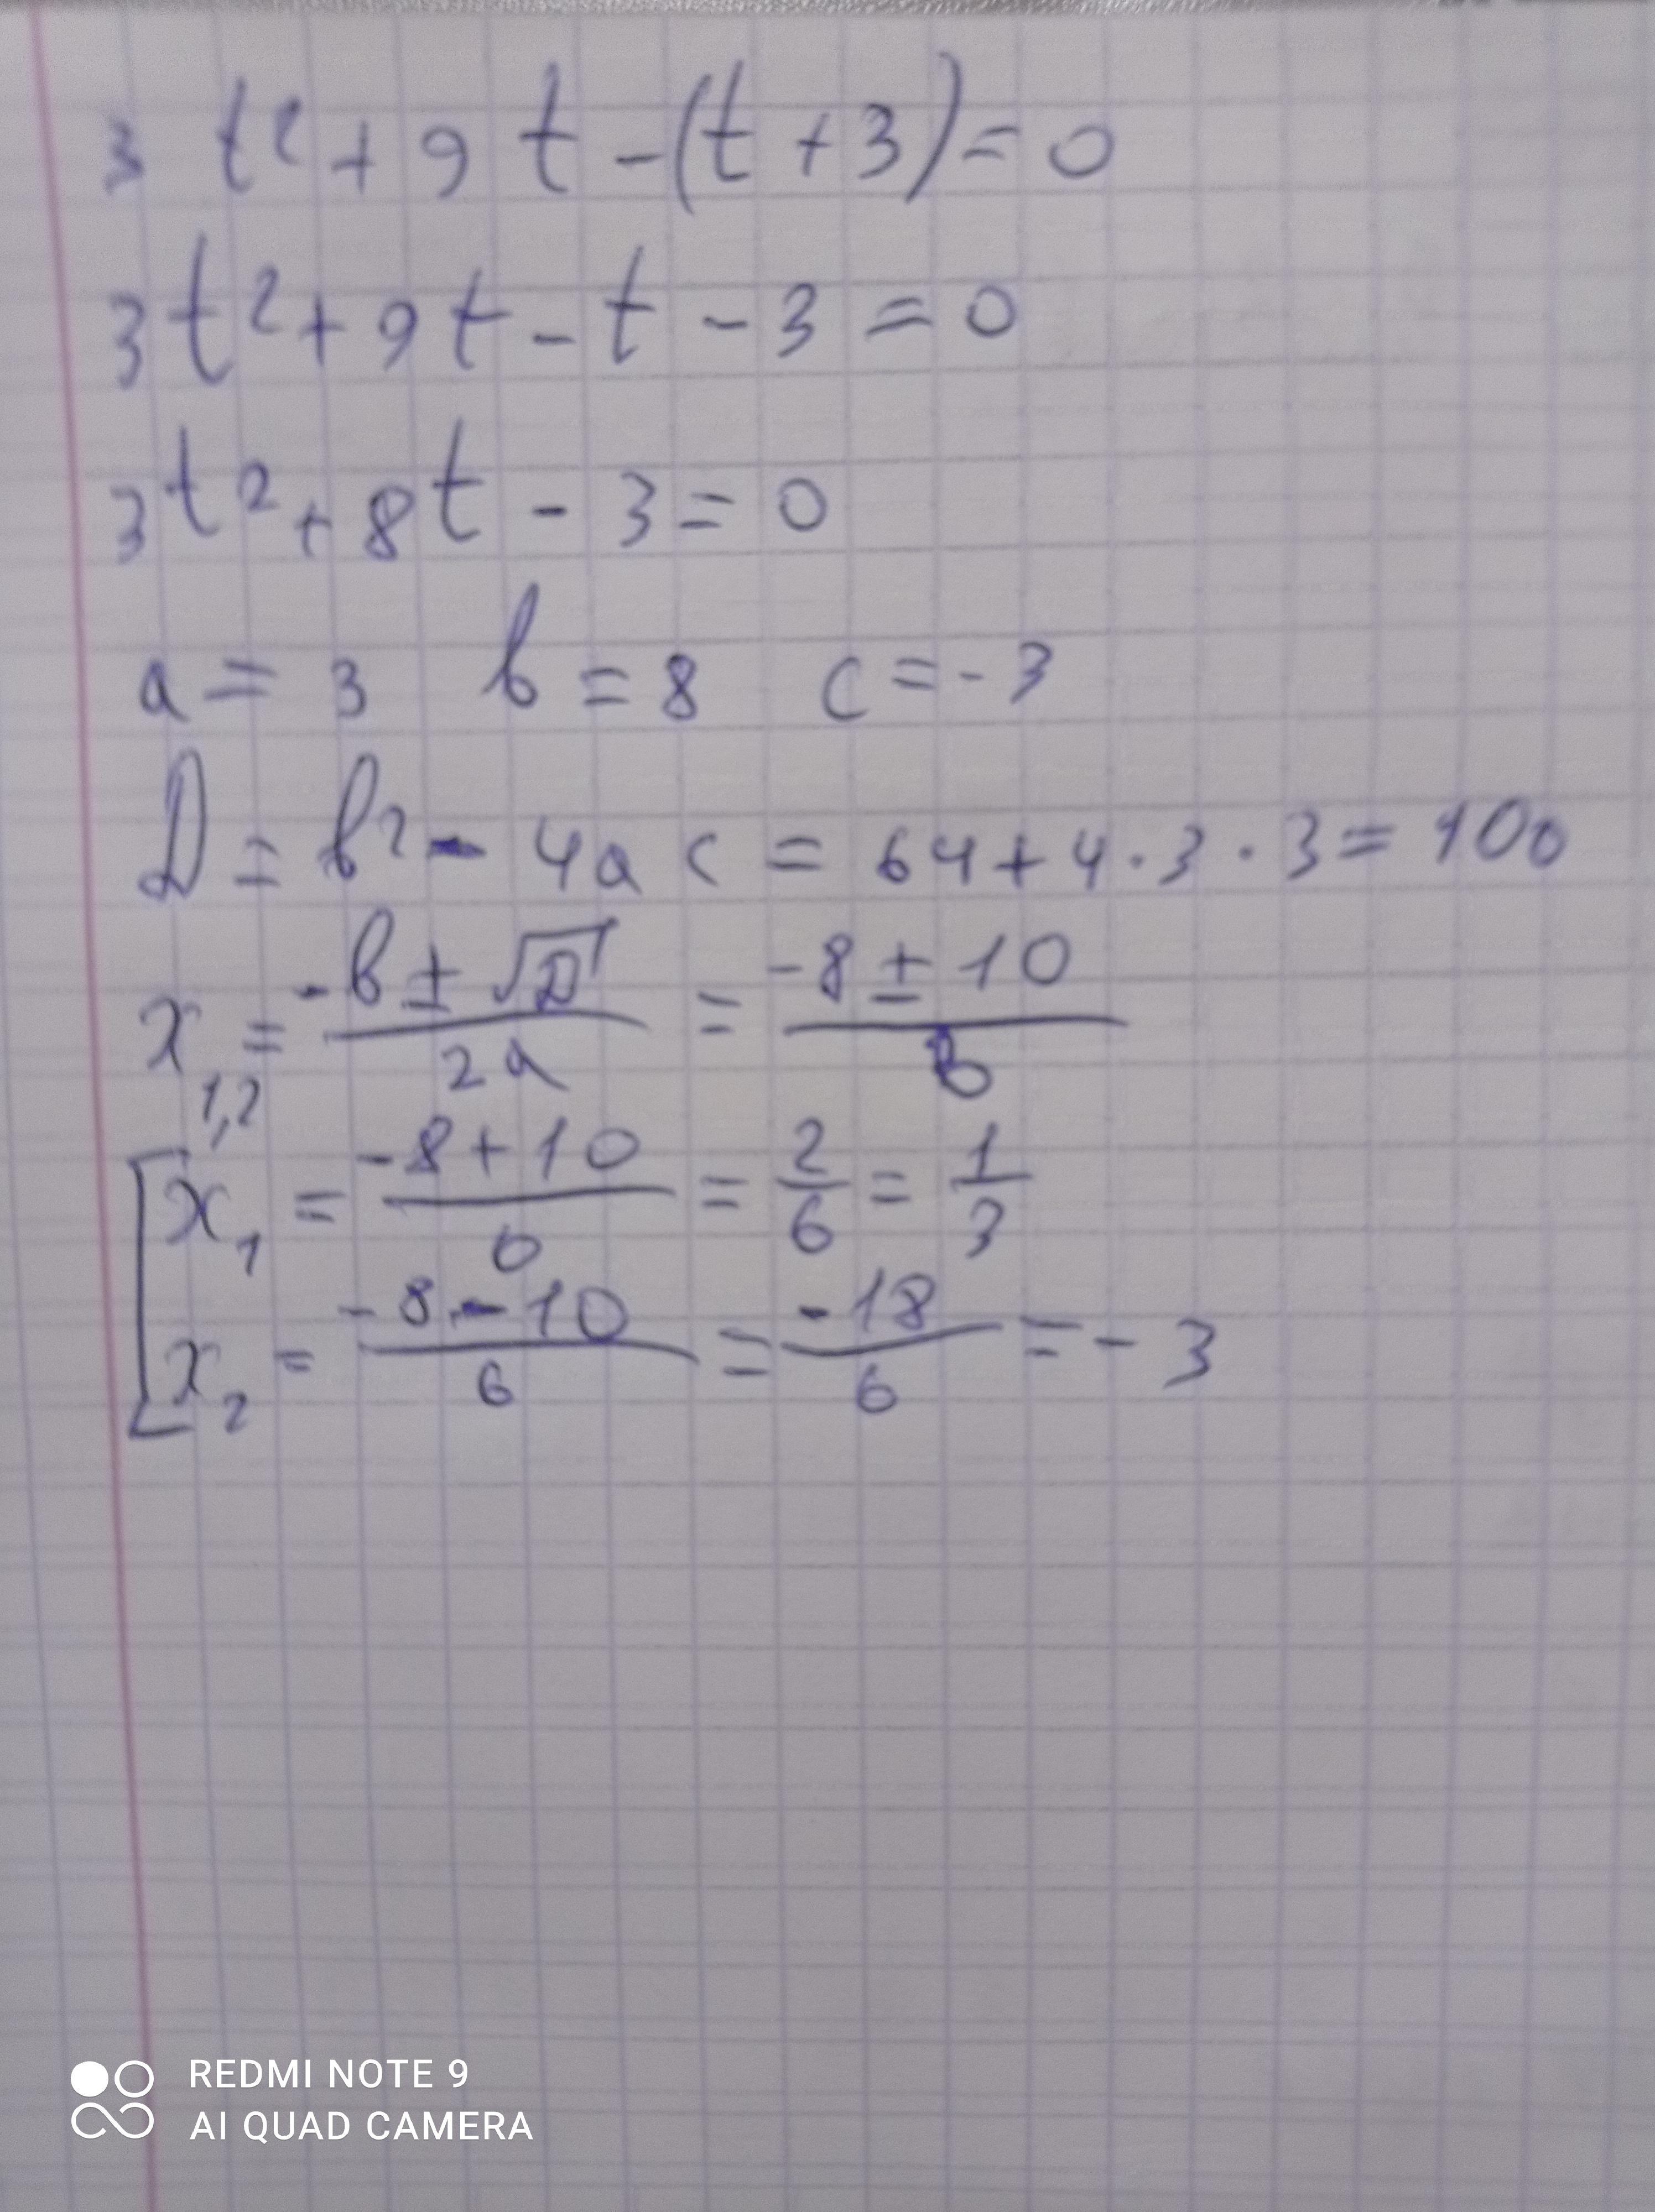 3 t² + 9 t - (t + 3) = 0
3t² + 9t - t - 3 = 0
3t² + 8t - 3 = 0
a = 3 b = 8 c = - 3
D = b² - 4ac = 64 + 4 · 3 · 3 = 100
x₁,₂ = (-b ± √D)/(2a) = (-8 ± 10)/6
[ x₁ = (-8 + 10)/6 = 2/6 = 1/3
x₂ = (-8 - 10)/6 = -18/6 = - 3
REDMI NOTE 9
AI QUAD CAMERA